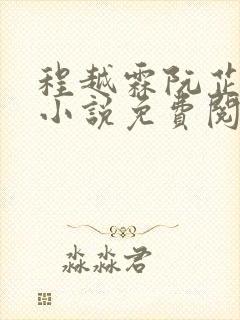 程越霖阮芷
小说免費閱
淼淼君